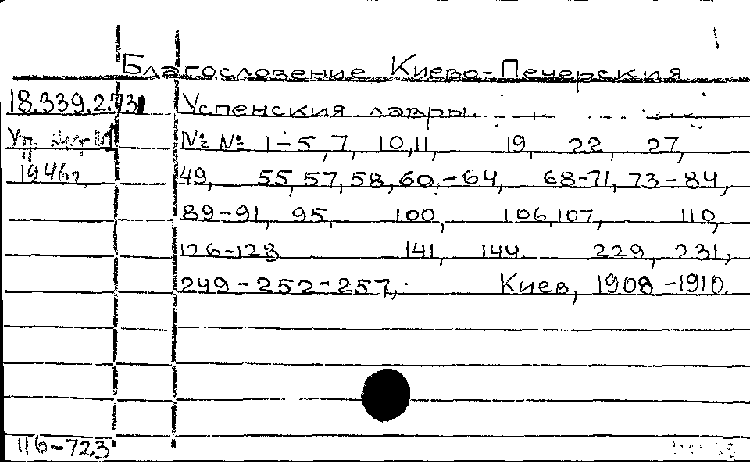 Благословение Киево-Печерския
18.339.2.73 Успенския лавры.
№№ 1-5, 7, 10, 11, 19, 22, 27,
1946г. 49, 55, 57, 58, 60,-64, 68-71, 73-84,
89-91, 95, 100, 106, 107, 110,
126-128 141, 144. 229, 231,
249-252-257, Киев, 1908-1910.
116-723